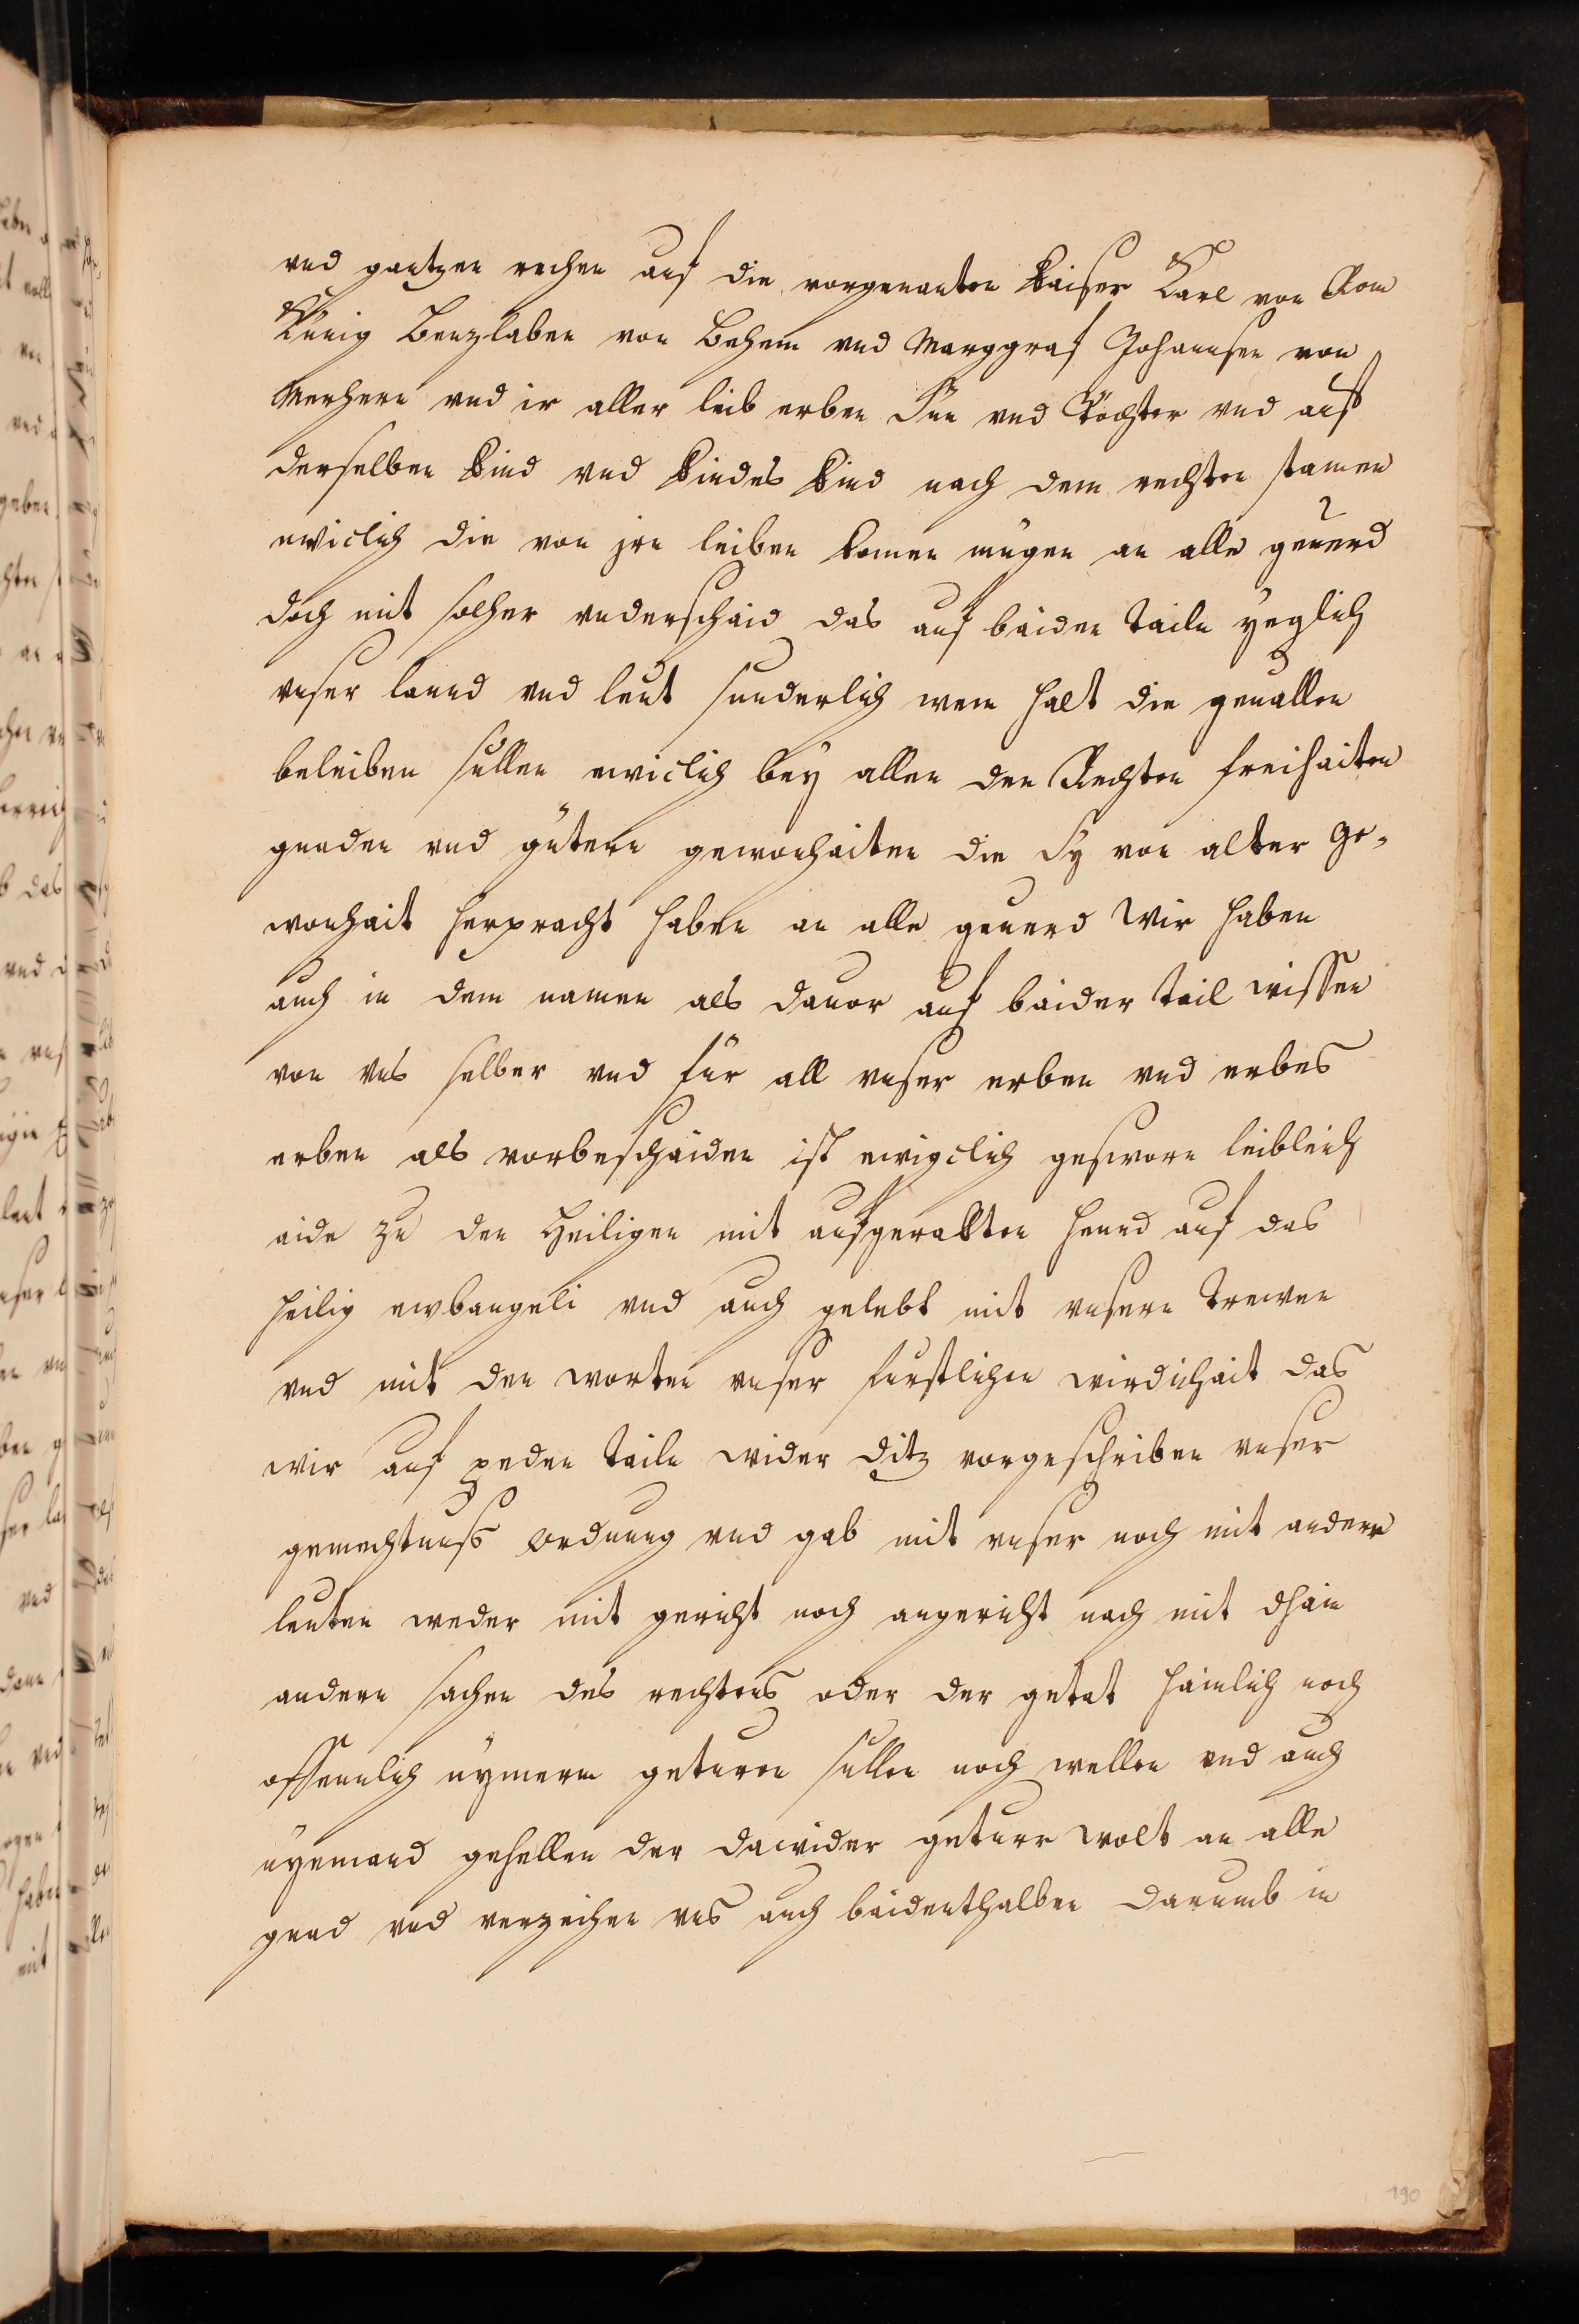 vnd gantzen rechen auf die vorgenanten Kaiser Karl von Rom
Künig Benzlaben von Behem vnd Marggraf Johannsen von
Merhern vnd ir aller leib erben Sün vnd Töchter vnd auf
derselben kind vnd kindes kind nach dem rechten stamen
ewiclich die von jrn leiben komen mügen an alle geuerd
doch mit solher vnderschaid das auf baiden tailn yeglich
vnser lannd vnd leut sunderlich wem halt die geuallen
beleiben süllen ewiclich bey allen den Rechten freihaiten
gnaden vnd gütern gewonhaiten die Sy von alter ge-
wonhait herpracht haben an alle geuerd Wir haben
auch in dem namen als dauor auf baider tail wissen
von vns selber vnd für all vnser erben vnd erbes
erben als vorbeschaiden ist ewigclich gesworn leibleich
aide zu den Heiligen mit aufgerakten hennd auf das
heilig ewbangeli vnd auch gelebt mit vnsern trewen
vnd mit den worten vnser furstlichen wirdichait das
wir auf peden tailn wider ditz vorgeschriben vnser
gemechtnuß Ordnung vnd gab mit vnser noch mit andern
leuten weder mit gericht noch angericht noch mit dhain
andern sachen des rechtens oder der getat haimlich noch
offennlich nymerm geturen sullen noch wellen vnd auch
nyemand gehellen der dawider geturr wolt an alle
gnad vnd verzeihen vns auch baidenthalben darumb in
190